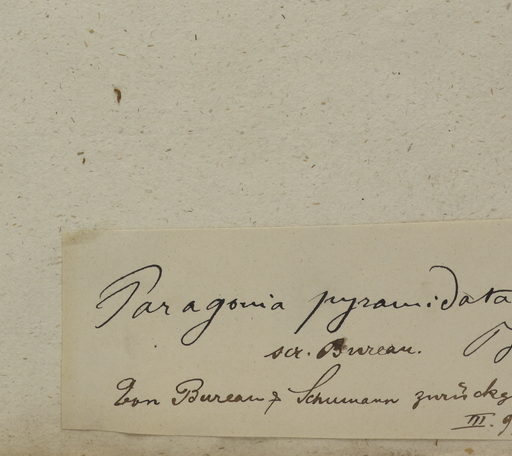 Paragonia pyramidata
scr. Bureau.
Von Bureau & Schumann zurückg
III. 9